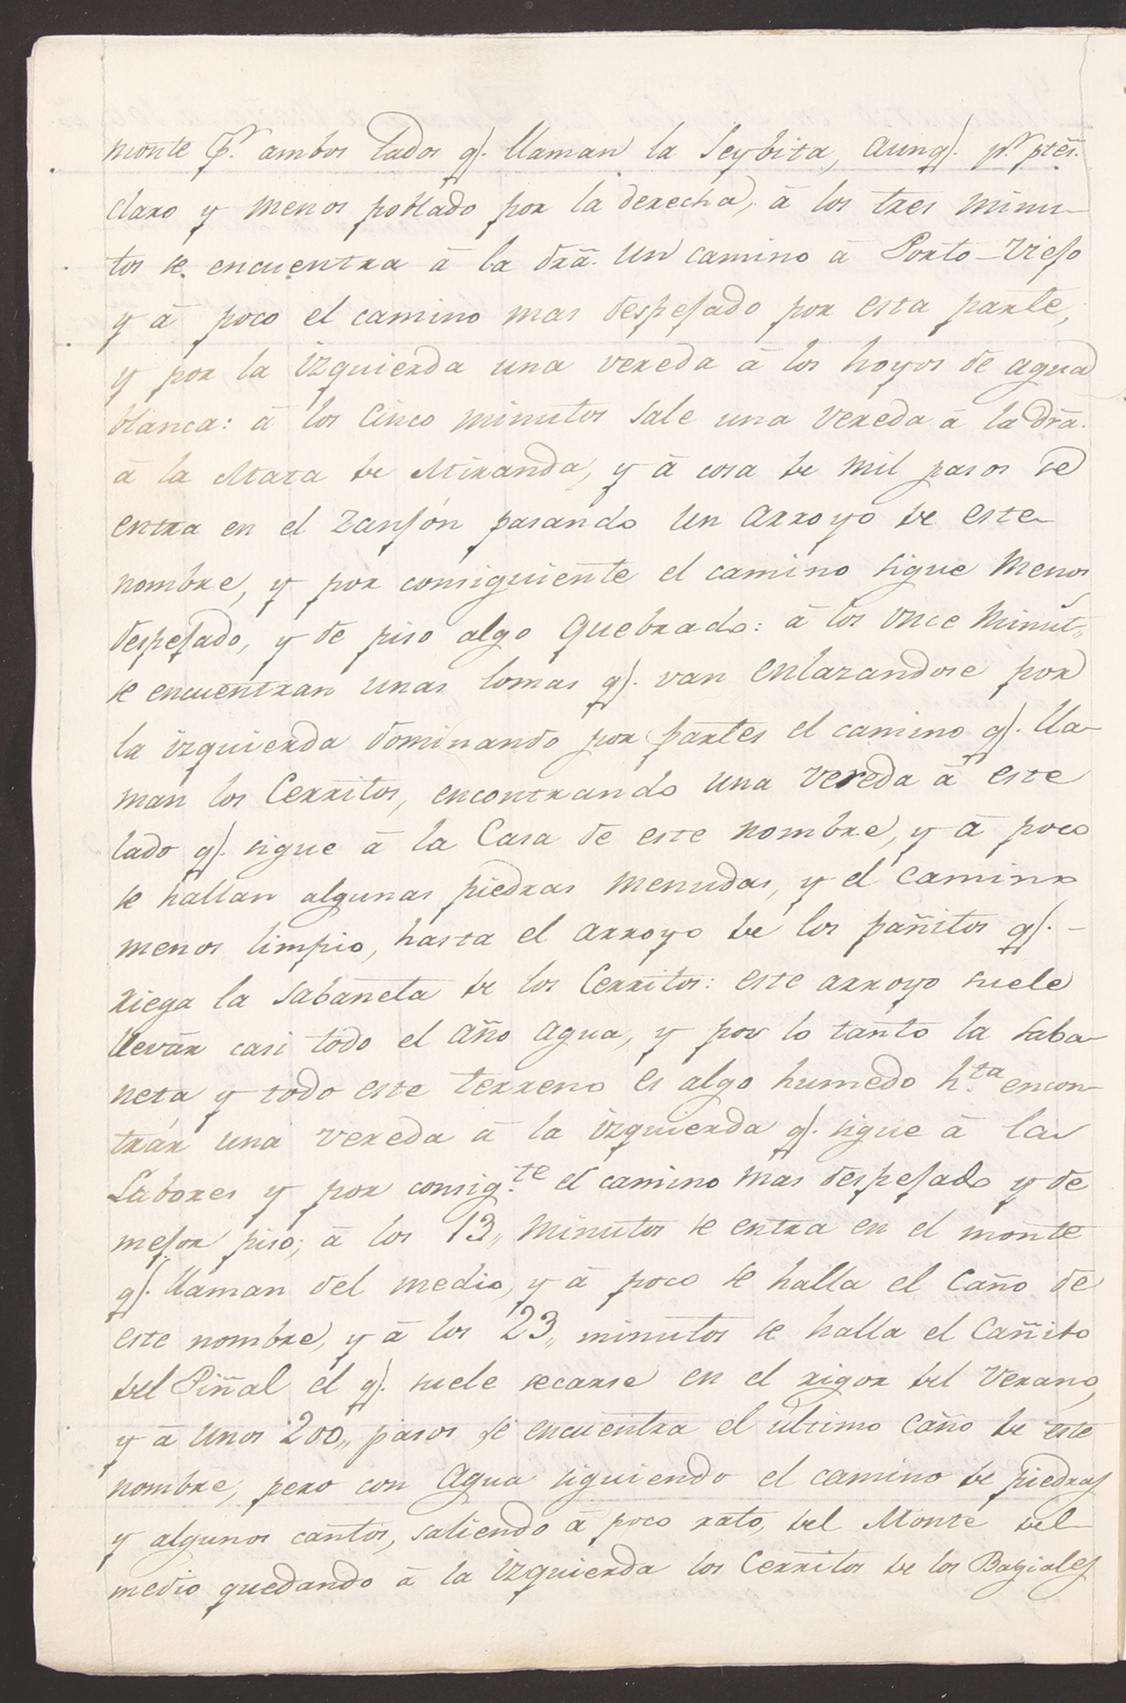 monte pr. ambos lados q. llaman la Seybita, aunq. pr. ptes.
claro y menos poblado por la derecha, á los tres minu-
tos se encuentra á la drã. un camino á Porto-Viejo
y á poco el camino mas despejado por esta parte,
y por la izquierda una vereda á los hoyos de agua
blanca: á los cinco minutos sale una vereda á la drã.
á la Mata de Miranda, y á cosa de mil pasos se
entra en el Zanjón pasando un arroyo de este
nombre, y por consiguiente el camino sigue menos
despejado, y de piso algo quebrado: á los once minut,,
se encuentran unas lomas q. van enlazandose por
la izquierda dominando por partes el camino q. lla-
man los Cerritos, encontrando una vereda á este
lado q. sigue á la Casa de este nombre, y á poco
se hallan algunas piedras menudas, y el camino
menos limpio, hasta el arroyo de los pañitos q. -
riega la sabaneta de los Cerritos: este arroyo suele
llevár casi todo el año agua, y por lo tanto la saba-
neta y todo este terreno es algo humedo h.ta encon-
trár una vereda á la izquierda q. sigue á la
Labores y por consig.te el camino mas despejado y de
mejor piso; á los 13,, minutos se entra en el monte
q. llaman del medio, y á poco se halla el caño de
este nombre, y á los 23,, minutos se halla el Cañito
del Piñal el q. suele secarse en el rigor del Verano,
y á unos 200,, pasos se encuentra el ultimo caño de este
nombre, pero con agua siguiendo el camino de piedras
y algunos cantos, saliendo á poco rato, del Monte del
medio quedando á la izquierda los Cerritos de los Bagiales